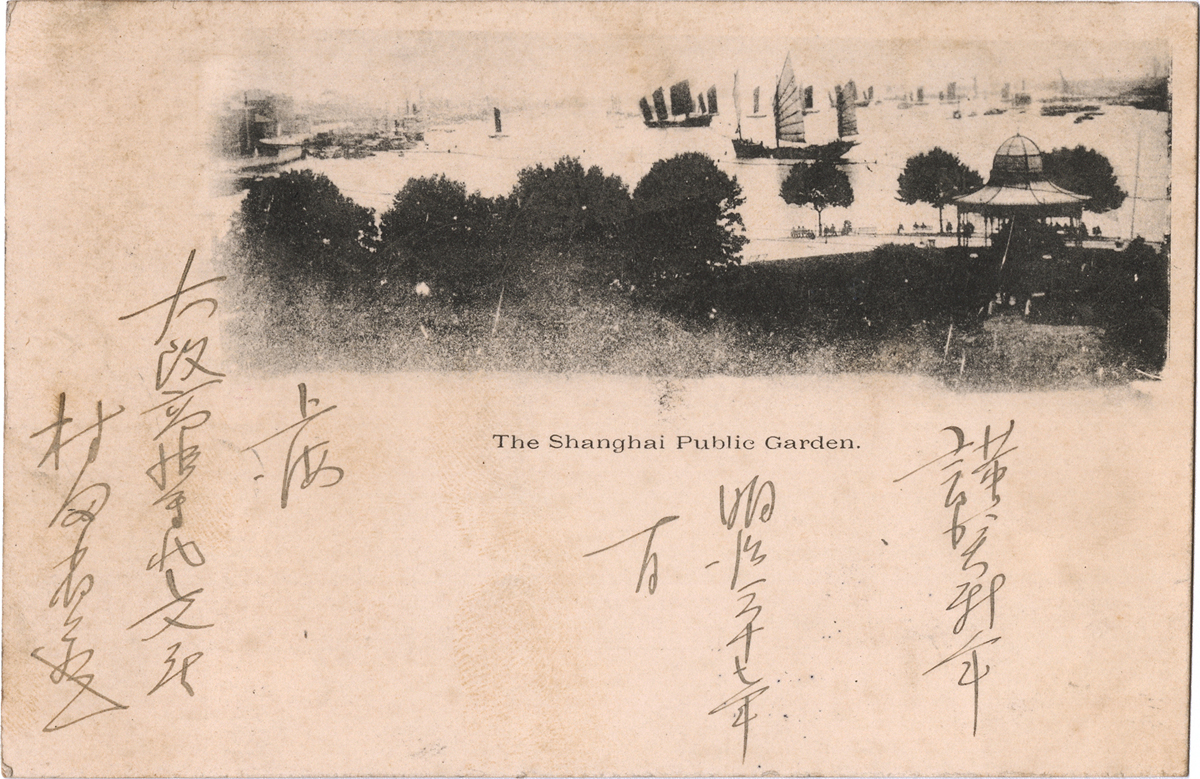 The Shanghai Public Garden.
謹賀新年
明治三十七年
一月
上海
大阪商船会社支店
村田省蔵